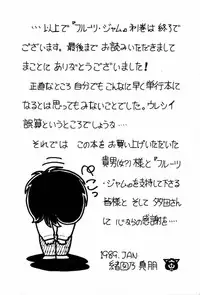 …以上で『フルーツ・ジャム』初巻は終りで
ございます。最後までお読みいただきまして
まことにありがとうございました!
正直なところ自分でもこんなに早く単行本に
なるとは思ってもみないことでした。ウレシイ
誤算というところでしょうな……
それではこの本をお買い上げいただいた
貴男(女?)様と『フルーツ
・ジャム』を支持して下さる
皆様とそして
に心からの感謝を……
ぺこっ
1989. JAN